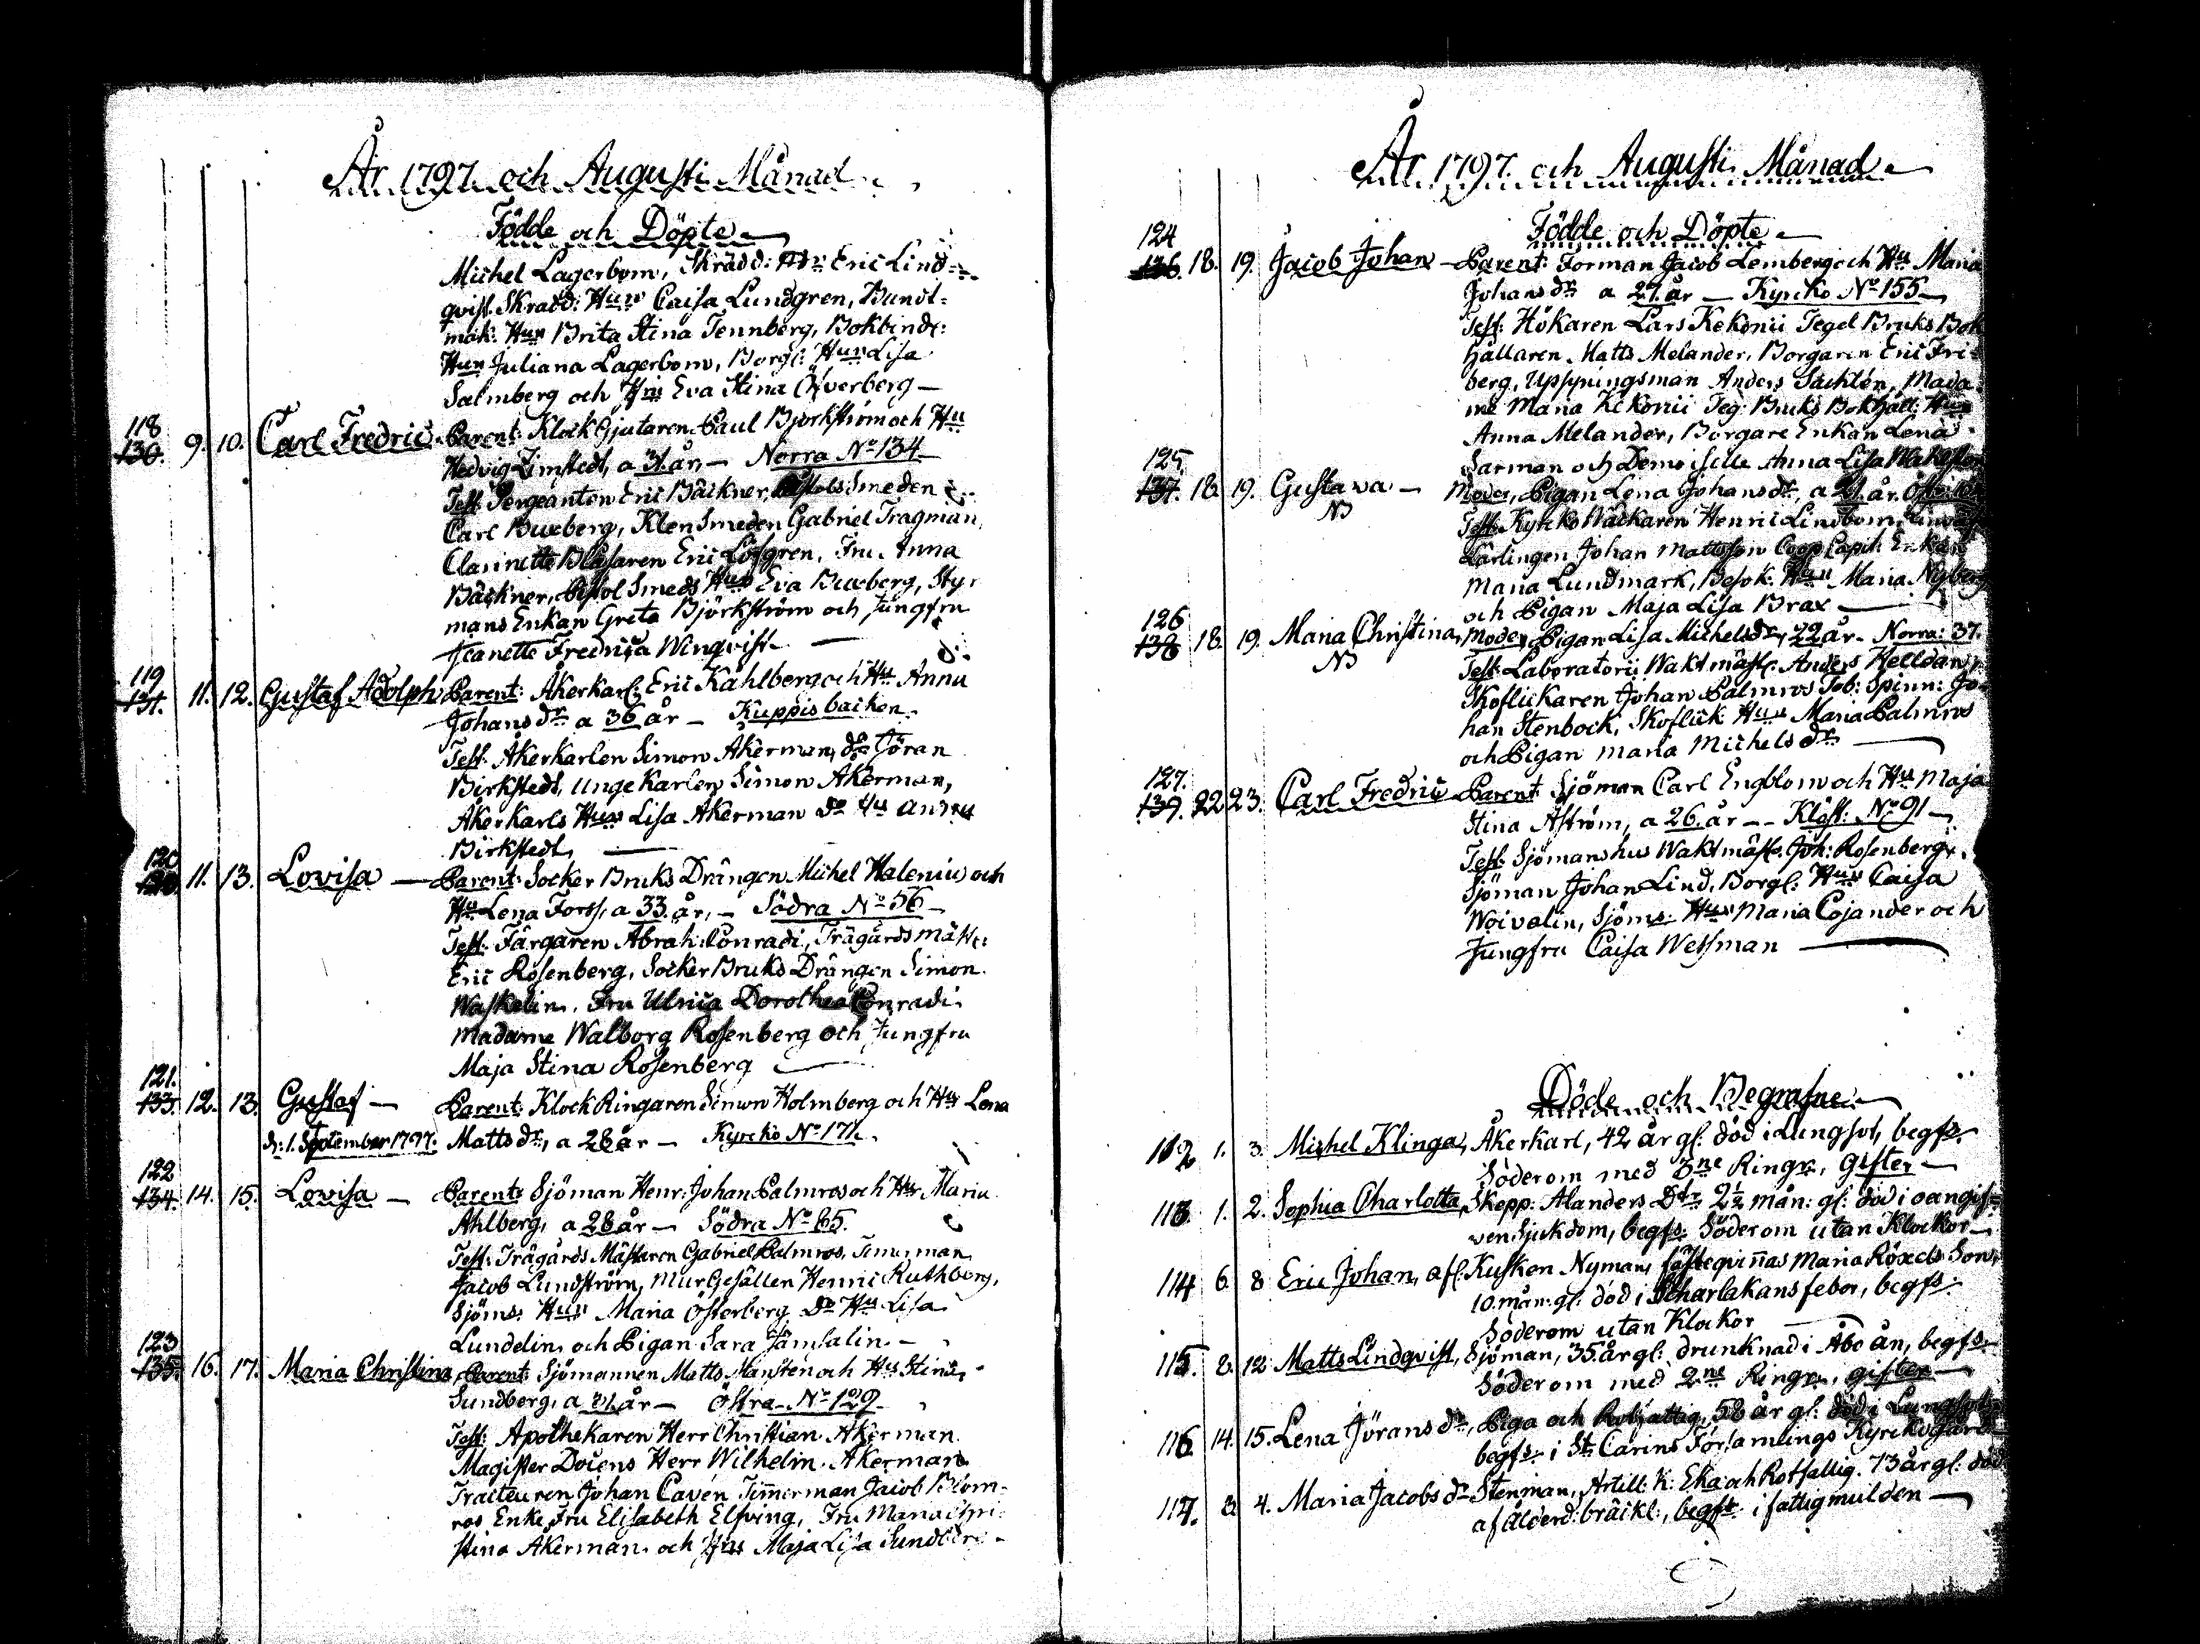 År 1797. och Augusti Månad
Födde och Döpte
Michel Lagerbom, Skrädd: Eric Lind-
qvist. Skrädd: Hun Caisa Lundgren, Bundt-
mak: Hun Brita Stina Tennberg, Bokbind:
Hun Juliana Lagerbom, Borgl: Hun Lisa
Salmberg och Eva Stina Öfverberg
118
130. 9. 10. Carl Fredric Parent: Klock Gjutaren Paul Björkström och Hu
Hedvig Zimstedt, a 31. år, — Norra No 134
Test: Sergeanten Eric Bäckner, Pistols Smeden
Carl Buxberg, Klen Smeden Gabriel Tragman,
Clarinette Blåsaren Eric Löfgren, Fru Anna
Bäckner, Pistol Smeds Hun Eva Buxberg, Styr
mans Enkan Greta Björkström och Jungfru
Jeanette Fredrica Winqvist
119
131. 11. 12. Gustaf Adolph Parent: Åkerkarl: Eric Kahlberg och Hu Anna
Johans dr a 36 år — Kuppis backen.
Test: Åkerkarlen Simon Åkerman, do Jöran
Birkstedt, Unge Karlen Simon Åkerman,
Åkerkarls Hun Lisa Åkerman do Hu Anna
Birkstedt,
120
11. 13. Lovisa — Parent: Socker Bruks Drängen Michel Halenius och
Hu Lena Forss, a 33. år, — Södra No 56
Test: Färgaren Abrah: Conradi, Trägårds mäst:
Eric Rosenberg, Socker Bruks Drängen Simon
Waskelin, Fru Ulrica Dorothea Conradi
Madame Walborg Rosenberg och Jungfru
Maja Stina Rosenberg
121.
133. 12. 13. Gustaf — Parent: Klock Ringaren Simon Holmberg och Hu Lena
d: 1. September 1797. Matts dr, a 28 år — Kyrcko No 171.
122
134. 14. 15. Lovisa — Parent: Sjöman Henr: Johan Palmros och Hu Maria
Ahlberg, a 28 år — Södra No 65.
Test: Trägårds Mästaren Gabriel Palmros, Timerman
Jacob Lundström, Mur Gesällen Henric Ruthberg,
Sjöms: Hun Maria Österberg Do Hu Lisa
Lundelin och Pigan Sara Jämsalin —
123
135. 16. 17. Maria Christina, Parent: Sjömannen Matts Mansten och Hu Stina
Sundberg, a 31. år — Östra No 129.
Test: Apothekaren Herr Christian Åkerman
Magister Docens Herr Wilhelm Åkerman
Tracteuren Johan Cavén Timmerman Jacob Blom-
ros Enke Fru Elisabeth Elfving, Fru Maria Chri-
stina Åkerman och Maja Lisa Sundberg
År 1797. och Augusti Månad
Födde och Döpte
124
136. 18. 19. Jacob Johan — Parent: Forman Jacob Lemberg och Hu Maria
Johans dr a 27. år — Kyrcko No 155
Test: Hökaren Lars Kekonii Tegel Bruks Bok
hållaren Matts Melander, Borgaren Eric Fri-
berg, Uppsyningsman Anders Sachlén, Mada-
me Maria Kekonii Teg: Bruks Bokhåll: Hun
Anna Melander, Borgare Enkan Lena
Sarman och Demoiselle Anna Lisa
125
137. 18. 19. Gustava — Moder, Pigan Lena Johans dr, a 21. år.
NB Test: Kyrcko Wäckaren Henric Lindbom,
Lärlingen Johan Mattsson Coop. Capit: Enkan
Maria Lundmark, Besök: Hun Maria Nyberg
och Pigan Maja Lisa Brax
126
138 18. 19. Maria Christina, Moder, Pigan Lisa Michels dr, 22 år — Norra: 37.
NB Test: Laboratorii Wakt mäst: Anders Helldan,
Skoflickaren Johan Palmros Tob: Spinn: Jo-
han Stenbock, Skoflick: Hun Maria Palmros
och Pigan Maria Michels dr
127.
139. 22 23. Carl Fredric Parent: Sjöman Carl Engblom och Hu Maja
Stina Åström, a 26. år — Klöst: No 91
Test: Sjömanshus Waktmäst: Joh: Rosenberg,
Sjöman Johan Lind, Borgl: Hun Caisa
Woivalin, Sjöms: Hun Maria Cojander och
Jungfru Caisa Wessman
Döde och Begrafne
112 1. 3. Michel Klinga, Åkerkarl, 42 år gl: död i Lungsot, begfs.
Söderom med 3ne Ringr:, gifter
113. 1. 2. Sophia Charlotta, Skepp: Alanders Dtr 2½ mån: gl: död i oangif-
ven Sjukdom, begfs: Söderom utan Klockor
114 6. 8 Eric Johan, afl: Kusken Nymans fästeqvinnas Maria Röxels Son,
10. mån: gl: död i Scharlakansfeber, begfs:
Söderom utan Klockor
115 8. 12 Matts Lindqvist, Sjöman, 35. år gl: drunknad i Åbo ån, begfs:
Söderom med 2ne Ringr:, gifter
116 14. 15. Lena Jörans dr, Piga och Rotfattig, 58 år gl: död i Lungsot
begfs: i St Carins Församlings Kyrckogård
117. 3. 4. Maria Jacobs dr Stenman, Artill: K: Eka och Rotfattig. 73 år gl: död
af Ålderd: bräckl:, begfs: i fattigmulden